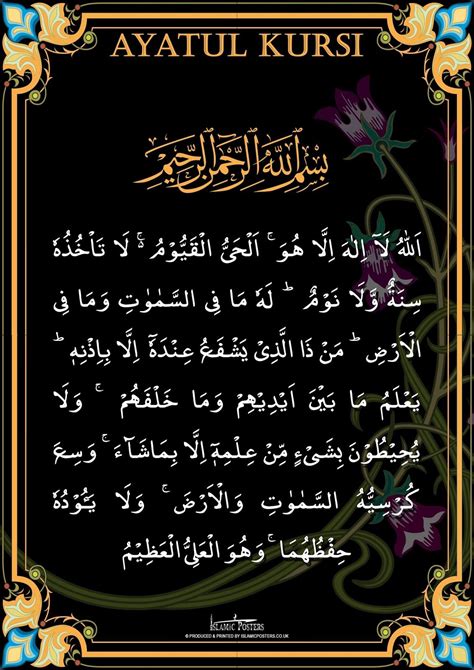 AYATUL KURSI
بِسْمِ اللهِ الرَّحْمٰنِ الرَّحِيْمِ
اَللهُ لَآ اِلٰهَ اِلَّا هُوَ ۚ اَلْحَىُّ الْقَيُّوْمُ ۚ لَا تَاْخُذُهٗ
سِنَةٌ وَّلَا نَوْمٌ ؕ لَهٗ مَا فِى السَّمٰوٰتِ وَمَا فِى
الْاَرْضِ ؕ مَنْ ذَا الَّذِىْ يَشْفَعُ عِنْدَهٗٓ اِلَّا بِاِذْنِهٖ ؕ
يَعْلَمُ مَا بَيْنَ اَيْدِيْهِمْ وَمَا خَلْفَهُمْ ۚ وَلَا
يُحِيْطُوْنَ بِشَىْءٍ مِّنْ عِلْمِهٖٓ اِلَّا بِمَاشَآءَ ۚ وَسِعَ
كُرْسِيُّهُ السَّمٰوٰتِ وَالْاَرْضَ ۚ وَلَا يَـُٔوْدُهٗ
حِفْظُهُمَا ۚ وَهُوَ الْعَلِىُّ الْعَظِيْمُ
ISLAMIC POSTERS
© PRODUCED & PRINTED BY ISLAMICPOSTERS.CO.UK